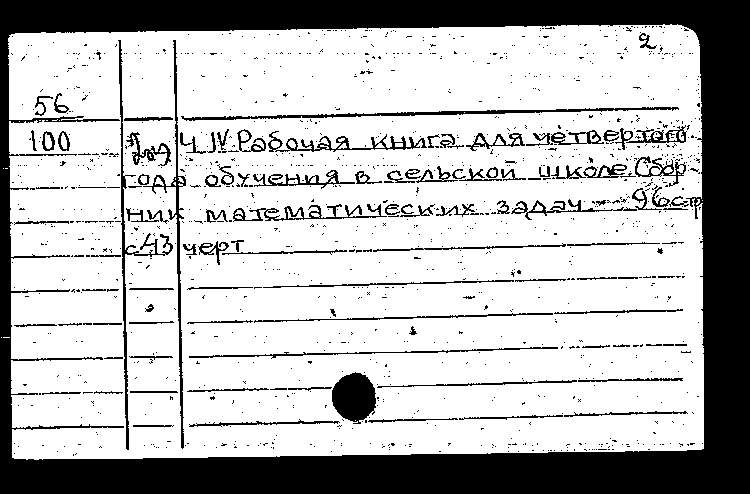 2.
56
100
Ч IV Рабочая книга для четвертого
года обучения в сельской школе. Сбор-
ник математических задач. - 96 стр
с 43 черт